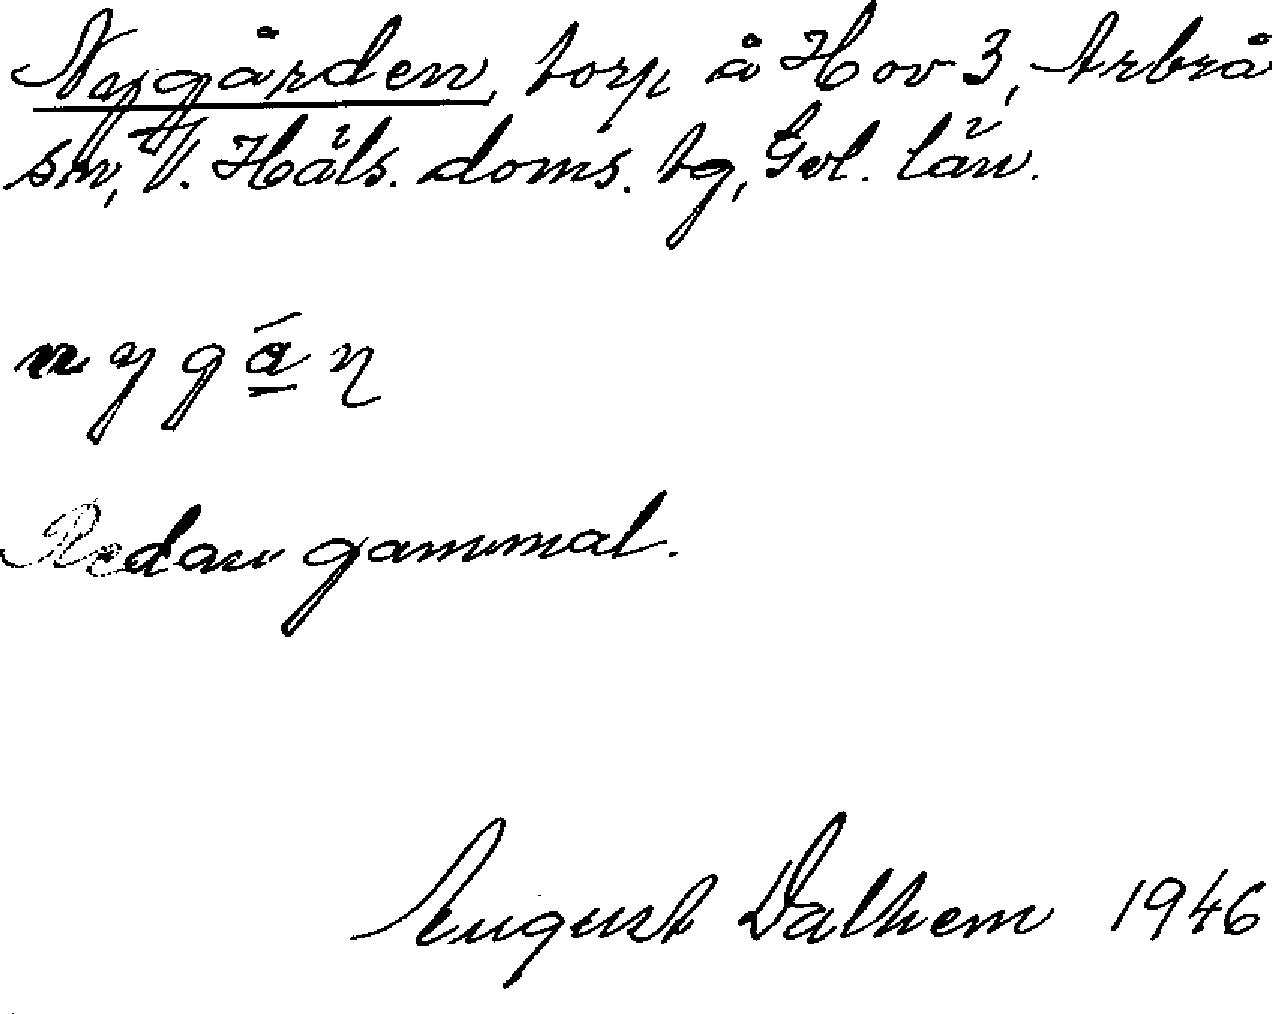 Nygården, torp å Hov 3, Arbrå
sn, V. Häls. doms. tg, Gvl. län.
nygá̲ɳ
Redan gammal.
August Dalhem 1946